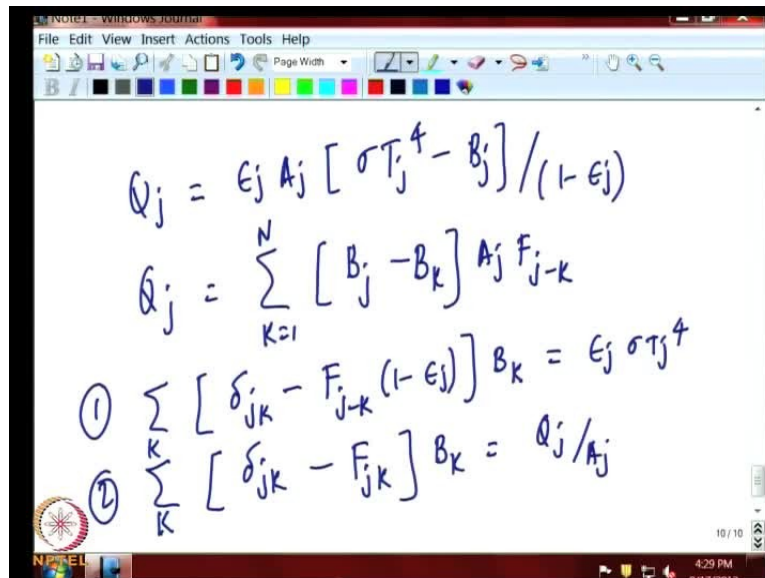 Note1 - Windows Journal
File Edit View Insert Actions Tools Help
Page Width
B I
Qj = ϵj Aj [ σTj^4 - Bj ] / (1 - ϵj)
Qj = Σ_{K=1}^{N} [ Bj - BK ] Aj F_{j-K}
① Σ_K [ δjK - F_{j-K} (1 - ϵj) ] BK = ϵj σTj^4
② Σ_K [ δjK - FjK ] BK = Qj / Aj
10 / 10
NPTEL
4:29 PM